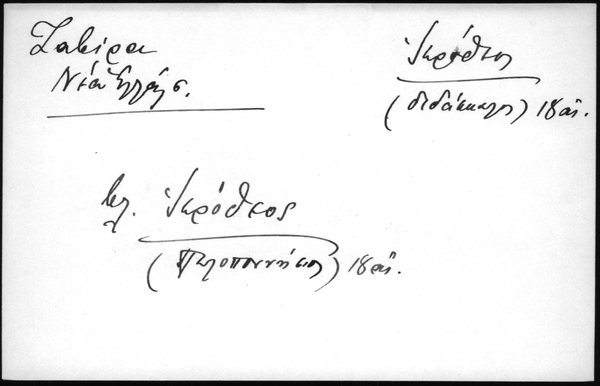 Ζαβίρα
Νέα Ἑλλάς.
Ἱερόθεος
(διδάσκαλος) 18 αἰ.
βλ. Ἱερόθεος
(Πελοποννήσιος) 18 αἰ.